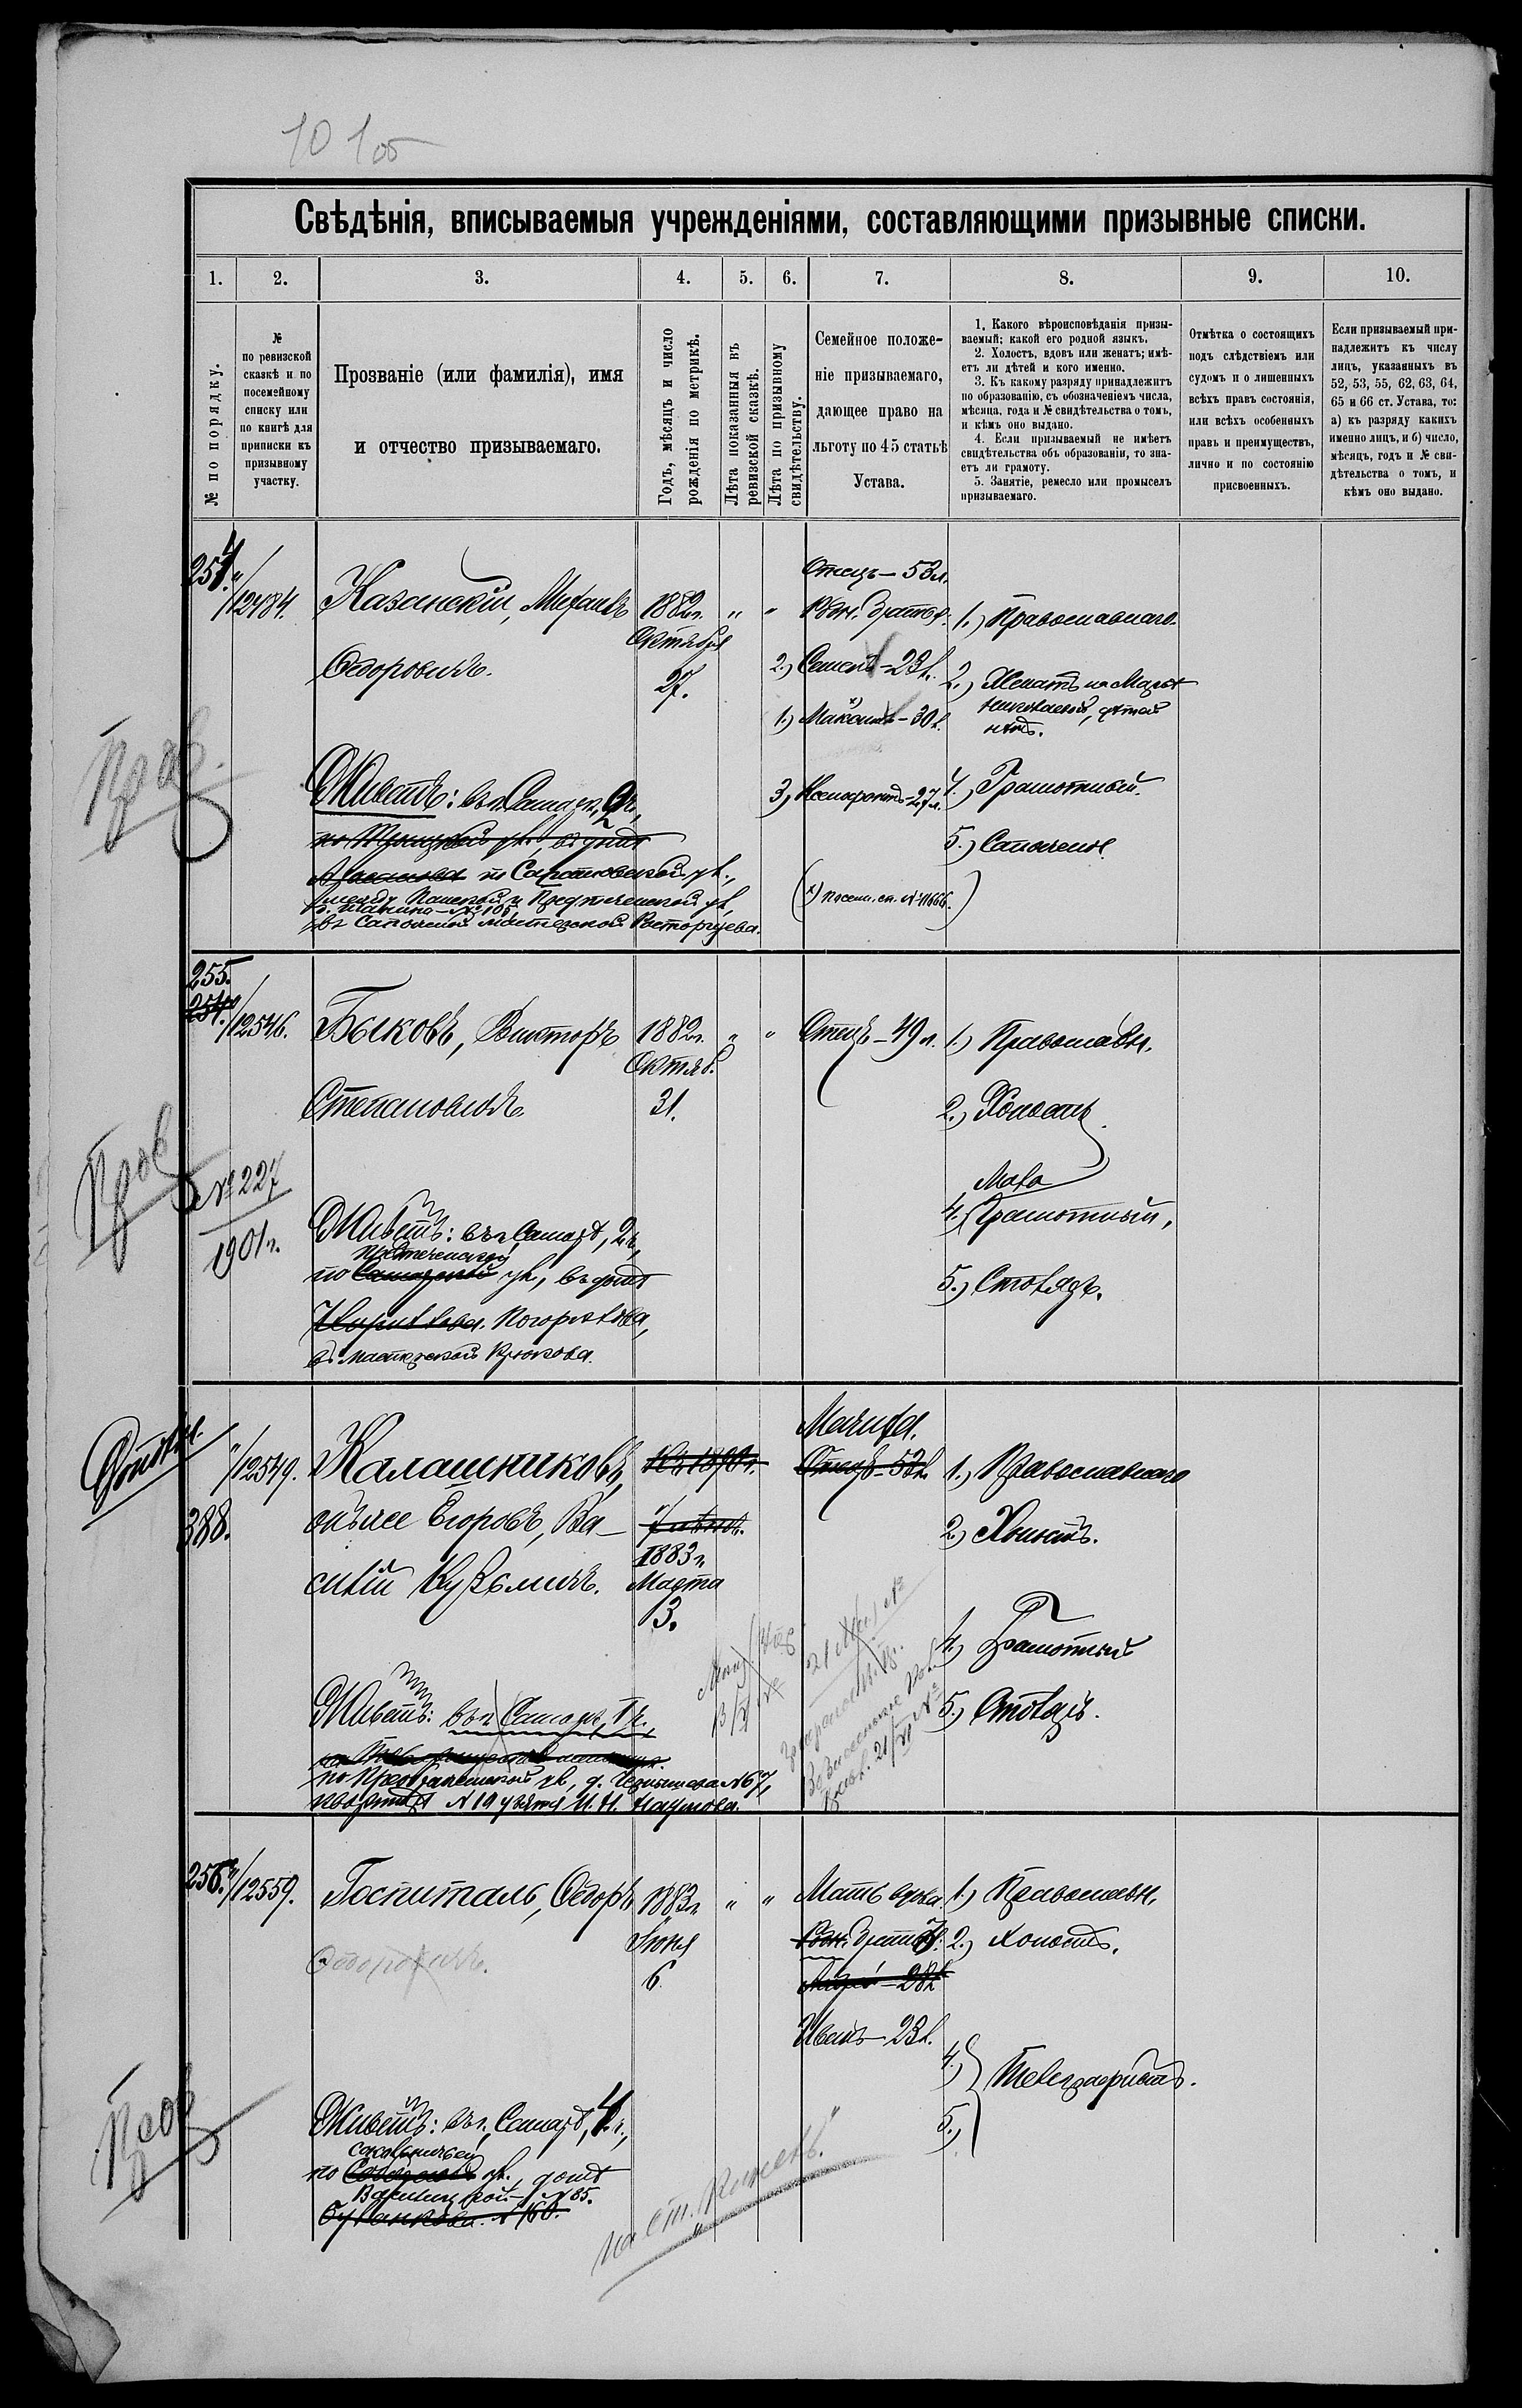 10 105
Свѣдѣнія, вписываемыя учрежденіями, составляющими призывные списки.
1.
2.
3.
4.
5.
6.
7.
8.
9.
10.
№ по порядку.
№
по ревизской
сказкѣ и по
посемейному
списку или
по книгѣ для
приписки къ
призывному
участку.
Прозваніе (или фамилія), имя
и отчество призываемаго.
Годъ, мѣсяцъ и число
рожденія по метрикѣ.
Лѣта показанныя въ
ревизской сказкѣ.
Лѣта по призывному
свидѣтельству.
Семейное положе-
ніе призываемаго,
дающее право на
льготу по 45 статьѣ
Устава.
1. Какого вѣроисповѣданія призы-
ваемый; какой его родной языкъ.
2. Холостъ, вдовъ или женатъ; имѣ-
етъ ли дѣтей и кого именно.
3. Къ какому разряду принадлежитъ
по образованію, съ обозначеніемъ числа,
мѣсяца, года и № свидѣтельства о томъ,
и кѣмъ оно выдано.
4. Если призываемый не имѣетъ
свидѣтельства объ образованіи, то зна-
етъ ли грамоту.
5. Занятіе, ремесло или промыселъ
призываемаго.
Отмѣтка о состоящихъ
подъ слѣдствіемъ или
судомъ и о лишенныхъ
всѣхъ правъ состоянія,
или всѣхъ особенныхъ
правъ и преимуществъ,
лично и по состоянію
присвоенныхъ.
Если призываемый при-
надлежитъ къ числу
лицъ, указанныхъ въ
52, 53, 55, 62, 63, 64,
65 и 66 ст. Устава, то:
а) къ разряду какихъ
именно лицъ, и б) число,
мѣсяцъ, годъ и № сви-
дѣтельства о томъ, и
кѣмъ оно выдано.
254.
"/12484.
Казанскій, Михаилъ
Ѳедоровичъ.
1882 г.
Октября
27.
"
"
Отецъ – 53 л.
Родн. братья:
2.) Семенъ – 23 л.
1.) Максимъ х) – 30 л.
3.)
27 л.
(х) Посем. сп. № 11666.)
1.) Православнаго.
2.) Женатъ на Марьѣ
Николаевой, дѣтей
нѣтъ.
4.) Грамотный.
5.) Сапожникъ.
Живетъ: въ г. Самарѣ, 2 ч.,
по Саратовской ул.,
между Панской и Предтеченской ул.,
№ 105,
въ сапожной мастерской Расторгуева.
255.
254.
"/12546.
№ 227
1901 г.
Быковъ, Викторъ
Степановичъ.
1882 г.
Октяб.
31.
"
"
Отецъ – 49 л.
1.) Православн.
2.) Холостъ.
Мало
4.) Грамотный,
5.) Столяръ.
Живетъ: въ г. Самарѣ, 2 ч.,
Предтеченской
по Самарской ул., въ домѣ
Погорѣлова,
въ мастерской Крюкова.
388.
"/12549.
Калашниковъ,
онъ же Егоровъ, Ва-
силій Кузьмичъ.
1883 г.
Марта
3.
Мачиха.
Отецъ – 53 л.
1.) Православнаго
2.) Холостъ.
4.) Грамотный
5.) Столяръ.
Живетъ: въ г. Самарѣ, 1 ч.,
по Преображенской ул., д. Чернышева № 67,
256.
"/12559.
Госпиталь, Ѳедоръ
Ѳедоровичъ.
1883 г.
Іюня
6
"
"
Мать вдова.
Родн. братья:
Андрей – 28 л.
Иванъ – 23 л.
1.) Православн.
2.) Холостъ.
4.)
5.)
Телеграфистъ.
Живетъ: въ г. Самарѣ, 4 ч.,
Сокольничьей
по Соборной ул., домъ
№ 85.
№ 160.
на ст. Кинель.